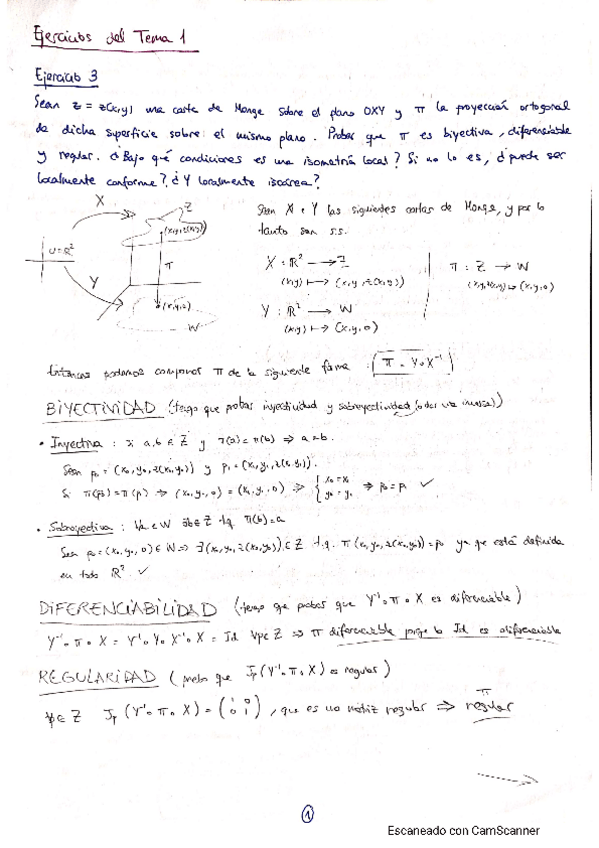 Ejercicios del Tema 1
Ejercicio 3
Sean z = z(x,y) una carta de Monge sobre el plano OXY y π la proyección ortogonal
de dicha superficie sobre el mismo plano. Probar que π es biyectiva, diferenciable
y regular. ¿Bajo qué condiciones es una isometría local? Si no lo es, ¿puede ser
localmente conforme? ¿Y localmente isoárea?
X
Z
(x,y,z(x,y))
U=R²
π
Y
(x,y,0)
W
Sean X e Y las siguientes cartas de Monge, y por lo
tanto son s.s.
X : R² → Z
(x,y) ↦ (x,y,z(x,y))
Y : R² → W
(x,y) ↦ (x,y,0)
π : Z → W
(x,y,z(x,y)) ↦ (x,y,0)
Entonces podemos componer π de la siguiente forma: π = Y∘X⁻¹
BIYECTIVIDAD (tengo que probar inyectividad y sobreyectividad (o dar una inversa))
• Inyectiva : si a,b ∈ Z y π(a)=π(b) ⇒ a=b.
Sean p₀ = (x₀,y₀,z(x₀,y₀)) y p₁ = (x₁,y₁,z(x₁,y₁)).
Si π(p₀)=π(p₁) ⇒ (x₀,y₀,0) = (x₁,y₁,0) ⇒ { x₀=x₁ y₀=y₁ ⇒ p₀=p₁ ✓
• Sobreyectiva : ∀a∈W ∃b∈Z t.q. π(b)=a
Sea p₀=(x₀,y₀,0)∈W ⇒ ∃(x₀,y₀,z(x₀,y₀))∈Z t.q. π(x₀,y₀,z(x₀,y₀))=p₀ ya que está definida
en todo R². ✓
DIFERENCIABILIDAD (tengo que probar que Y⁻¹∘π∘X es diferenciable)
Y⁻¹∘π∘X = Y⁻¹∘Y∘X⁻¹∘X = Id ∀p∈Z ⇒ π diferenciable porque la Id es diferenciable
REGULARIDAD (probar que Jp(Y⁻¹∘π∘X) es regular)
∀p∈Z Jp(Y⁻¹∘π∘X) = (1 0 0 1), que es una matriz regular ⇒ π regular
1
Escaneado con CamScanner